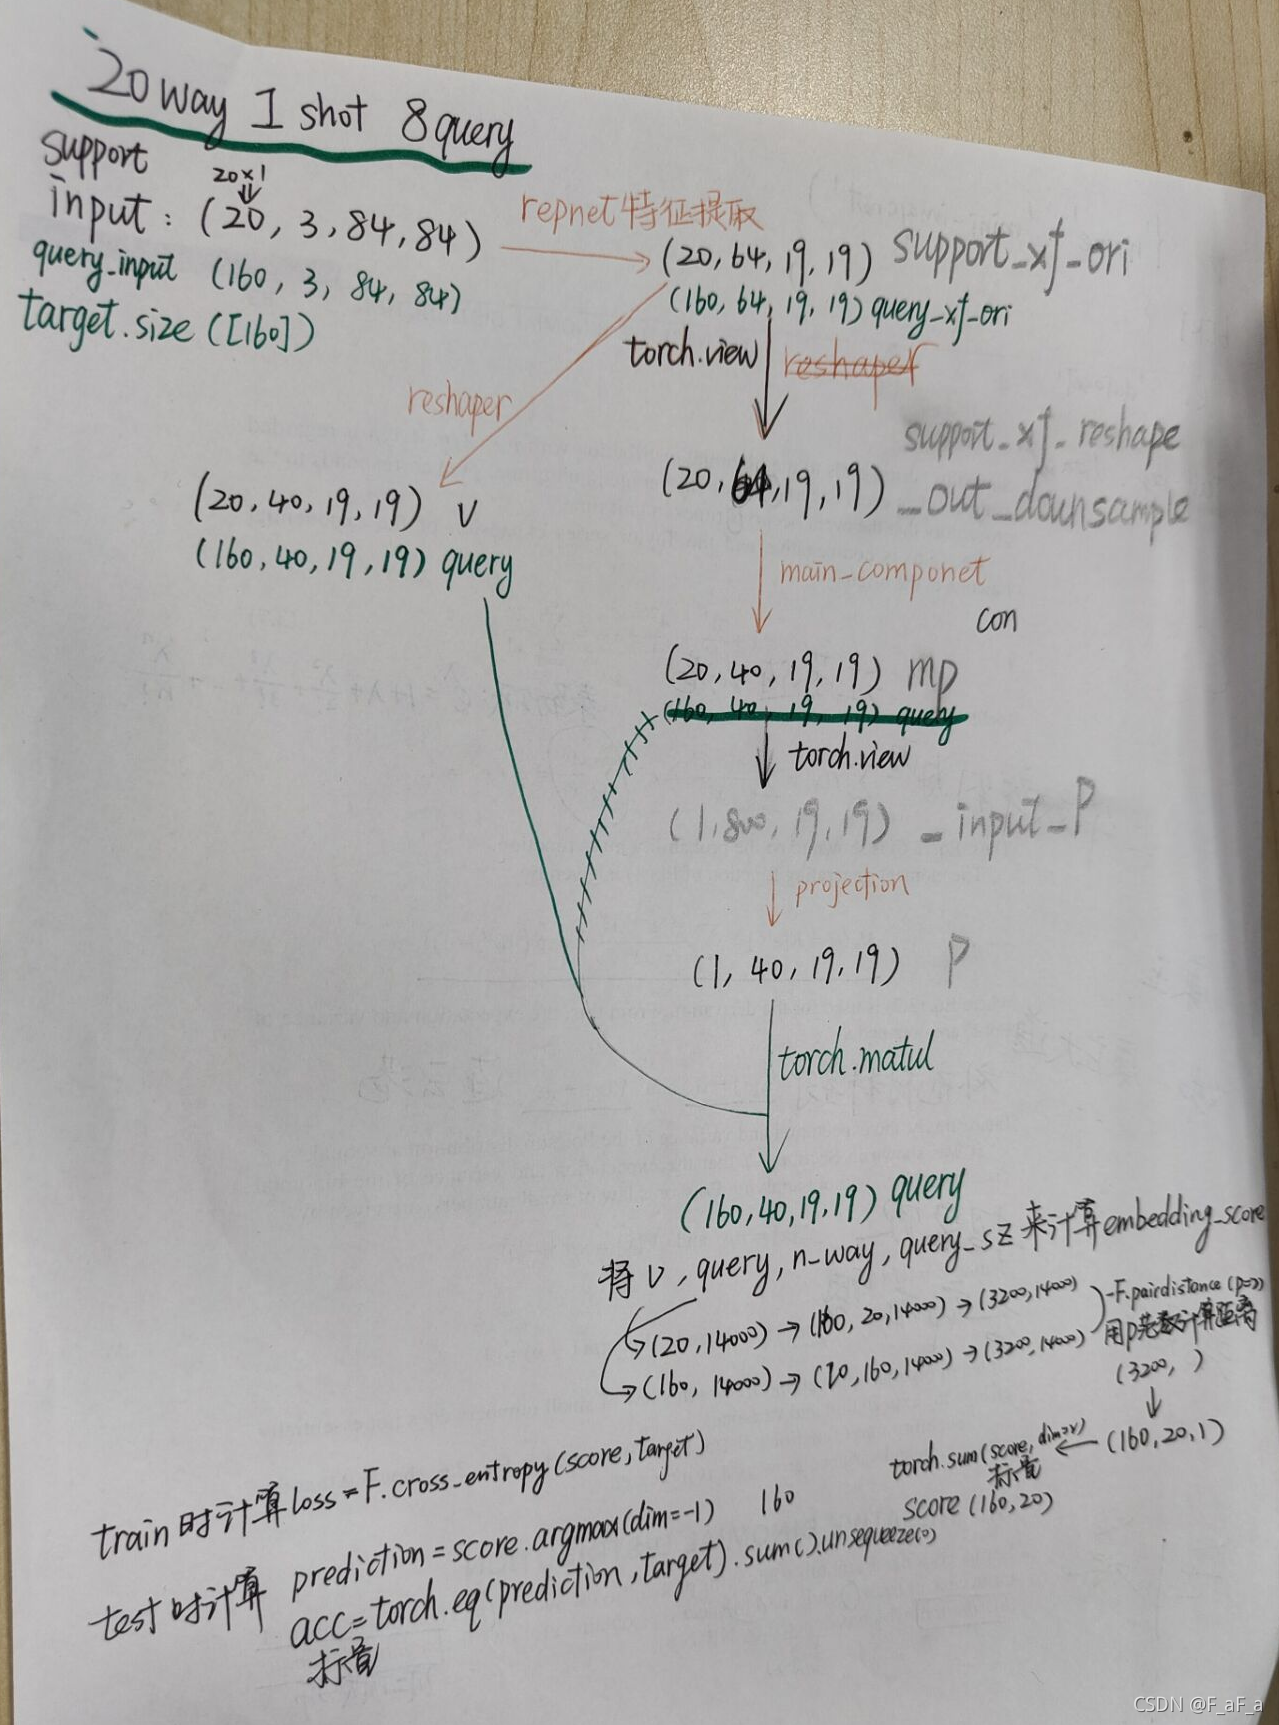 20 way 1 shot 8 query
support
20×1
input : (20, 3, 84, 84)
query_input (160, 3, 84, 84)
target.size([160])
repnet特征提取
(20, 64, 19, 19) support_xf_ori
(160, 64, 19, 19) query_xf_ori
torch.view reshaper
reshaper
support_xf_reshape
(20, 64, 19, 19) _out_downsample
(20, 40, 19, 19) v
(160, 40, 19, 19) query
main_componet
con
(20, 40, 19, 19) mp
(160, 40, 19, 19) query
torch.view
(1, 800, 19, 19) _input_P
projection
(1, 40, 19, 19) P
torch.matul
(160, 40, 19, 19) query
将 v, query, n_way, query_sz 来计算embedding_score
(20, 14000) → (160, 20, 14000) → (3200, 14000)
-F.pairdistance (p=2)
用p范数计算距离
(160, 14000) → (20, 160, 14000) → (3200, 14000)
(3200, )
(160, 20, 1)
torch.sum(score, dim=2)
标量
score (160, 20)
train时计算loss = F.cross_entropy(score, target)
test时计算 prediction = score.argmax(dim=-1) 160
acc = torch.eq(prediction, target).sum().unsequeeze(0)
标量
CSDN @F_aF_a